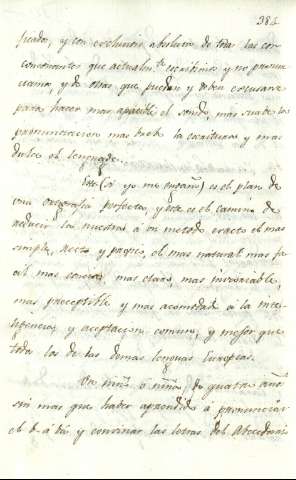 381
ficado, y con exclusion absoluta de todas las con
consonantes que actualm.te escribimos y no pronun
ciamos, y de otras que pueden y deben escusarse
para hacer mas apacible el sonido, mas suave la
pronunciacion mas breve la escritura y mas
dulce el lenguage.
Este (si yo no me engaño) es el plan de
una ortografia perfecta, y este es el camino de
reducir la nuestra á un metodo exacto el mas
simple, recto y propio, el mas natural mas fa
cil mas conciso mas claro, mas invariable,
mas perceptible y mas acomodado á la inte
ligencia y aceptacion comun, y mejor que
todos los de las demas lenguas Europeas.
Un niño ó niña de quatro años
sin mas que haber aprendido á pronunciar
el b-a ba y convinar las letras del Abecedario